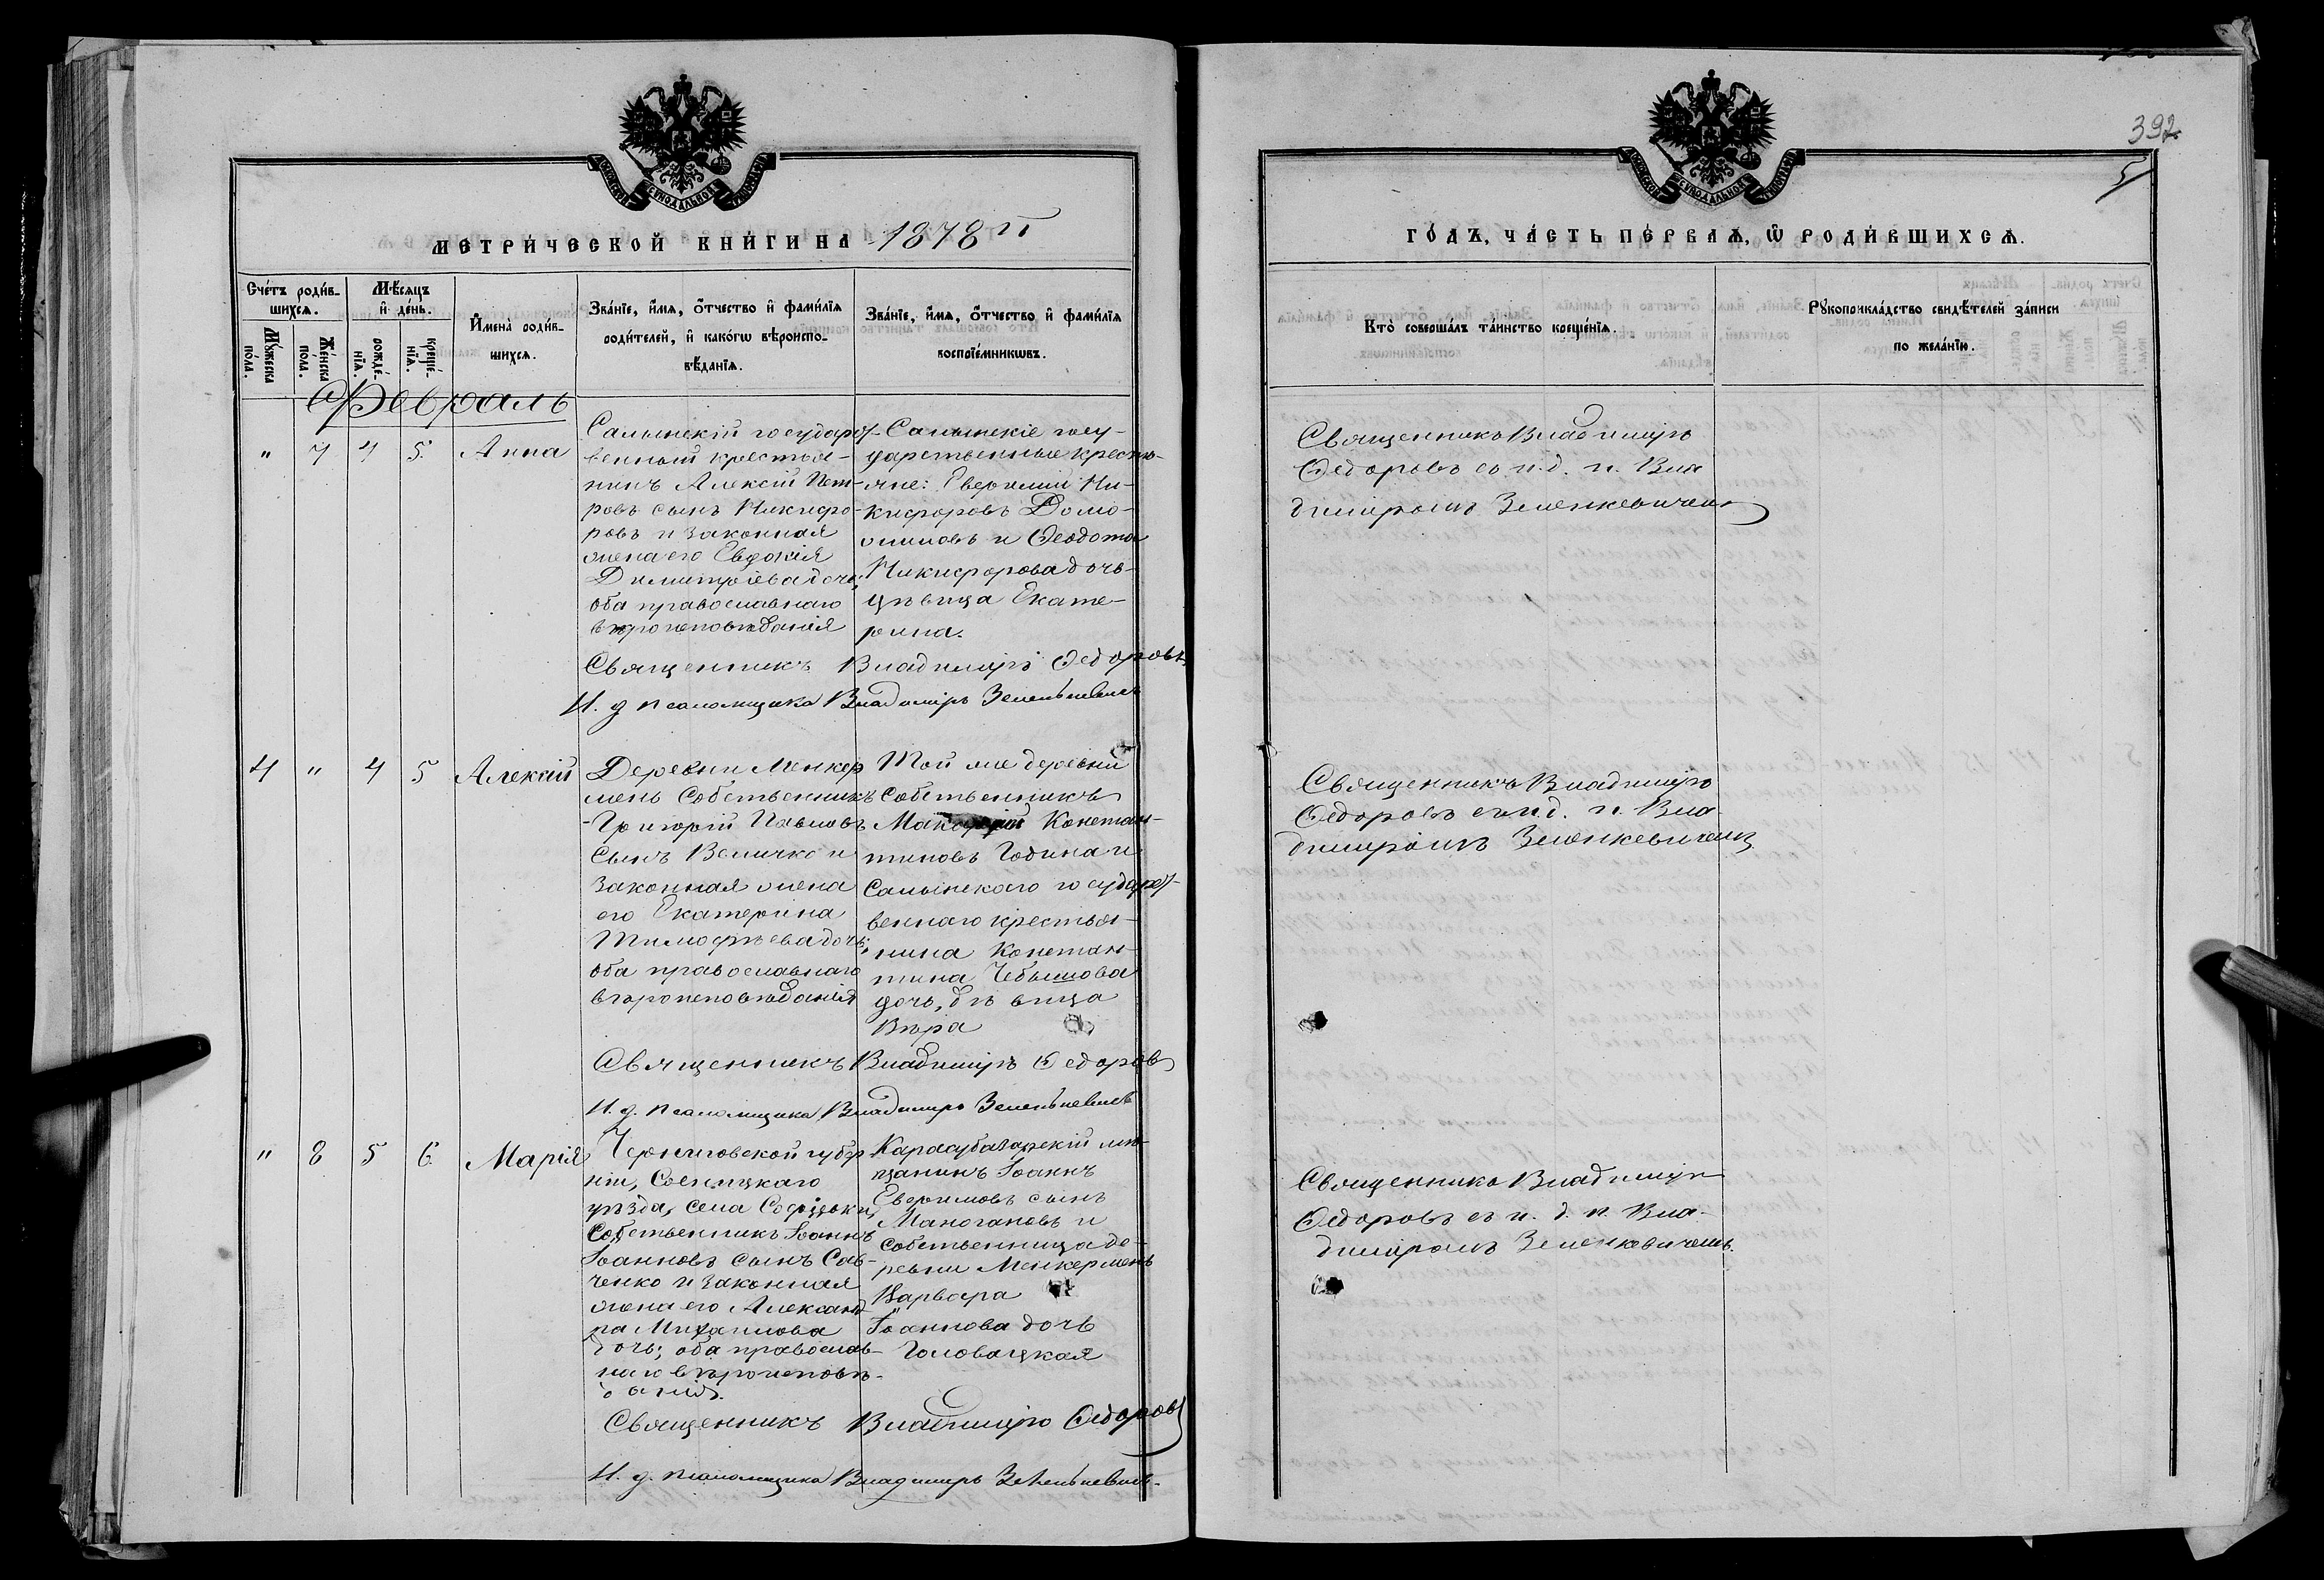 392
5
МЕТРИ́ЧЕСКОЙ КНИ́ГИ НА 1878 й
ГО́ДЪ, ЧА́СТЬ ПЕ́РВАѦ, Ѽ РОДИ́ВШИХСѦ.
Сче́тъ роди́в-
шихсѧ.
Мꙋ́жеска
по́ла.
Же́нска
по́ла.
Мѣ́сѧцъ
и҆ де́нь.
рожде́-
нїѧ.
креще́-
нїѧ.
И҆мена̀ роди́в-
шихсѧ.
Зва́нїе, и҆́мѧ, ѻ҆́тчество и҆ фами́лїѧ
роди́телей, и҆ како́гѡ вѣроиспо-
вѣ́данїѧ.
Зва́нїе, и҆́мѧ, ѻ҆́тчество и҆ фами́лїѧ
воспрїе́мникѡвъ.
Кто̀ соверша́лъ та́инство креще́нїѧ.
Рꙋкоприкла́дство свидѣ́телей за́писи
по жела́нїю.
Февраль
" 7 4 5. Анна
Салынскій государст-
венный крестья-
нинъ Алексій Пет-
ровъ сынъ Никифо-
ровъ и законная
жена его Евдокія
Димитріева дочь;
оба православнаго
вѣроисповѣданія
Салынскіе госу-
дарственные крестья-
яне: Евфимій Ни-
кифоровъ Домо-
жиловъ и Феодота
Никифорова дочь
дѣвица Екате-
рина.
Священникъ Владиміръ Федоровъ
И. д. псаломщика Владиміръ Зеленкевичъ
Священникъ Владиміръ
Федоровъ съ и. д. п. Вла
диміромъ Зеленкевичемъ
4 " 4 5 Алексій
Деревни Менкер
мень собственникъ
Григорій Павловъ
сынъ Величко и
законная жена
его Екатерина
Тимофѣева дочь;
оба православнаго
вѣроисповѣданія
Той же деревни
собственникъ
Констан-
тиновъ Година и
Салынскаго государст-
веннаго крестья-
нина Констан-
тина Чебышова
дочь, дѣвица
Вѣра
Священникъ Владиміръ Федоровъ
И. д. псаломщика Владиміръ Зеленкевичъ
Священникъ Владиміръ
Федоровъ съ и. д. п. Вла-
диміромъ Зеленкевичемъ
" 8 5 6. Марія
Черниговской губер
ніи, Сосницкаго
уѣзда, села
собственникъ Іоаннъ
Іоанновъ сынъ Сав-
ченко и законная
жена его Александ
ра Михаилова
дочь; оба православ-
наго вѣроисповѣ-
данія.
Карасубазарскій мѣ-
щанинъ Іоаннъ
Евфимовъ сынъ
Маногановъ и
собственница де-
ревни Менкермень
Варвара
Іоаннова дочь
Головацкая
Священникъ Владиміръ Федоровъ
И. д. псаломщика Владиміръ Зеленкевичъ.
Священникъ Владиміръ
Федоровъ съ и. д. п. Вла-
диміромъ Зеленкевичемъ.